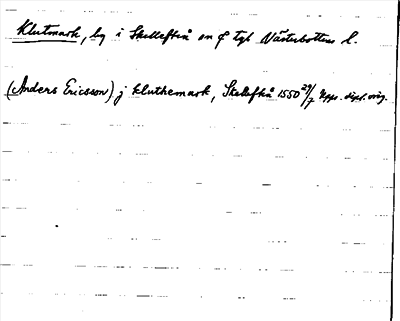 Klutmark, by i Skellefteå sn o tgl Västerbottens l.
(Anders Ericsson) j kluthemark, Skellefteå 1550 29/7 Upps. dipl. orig.